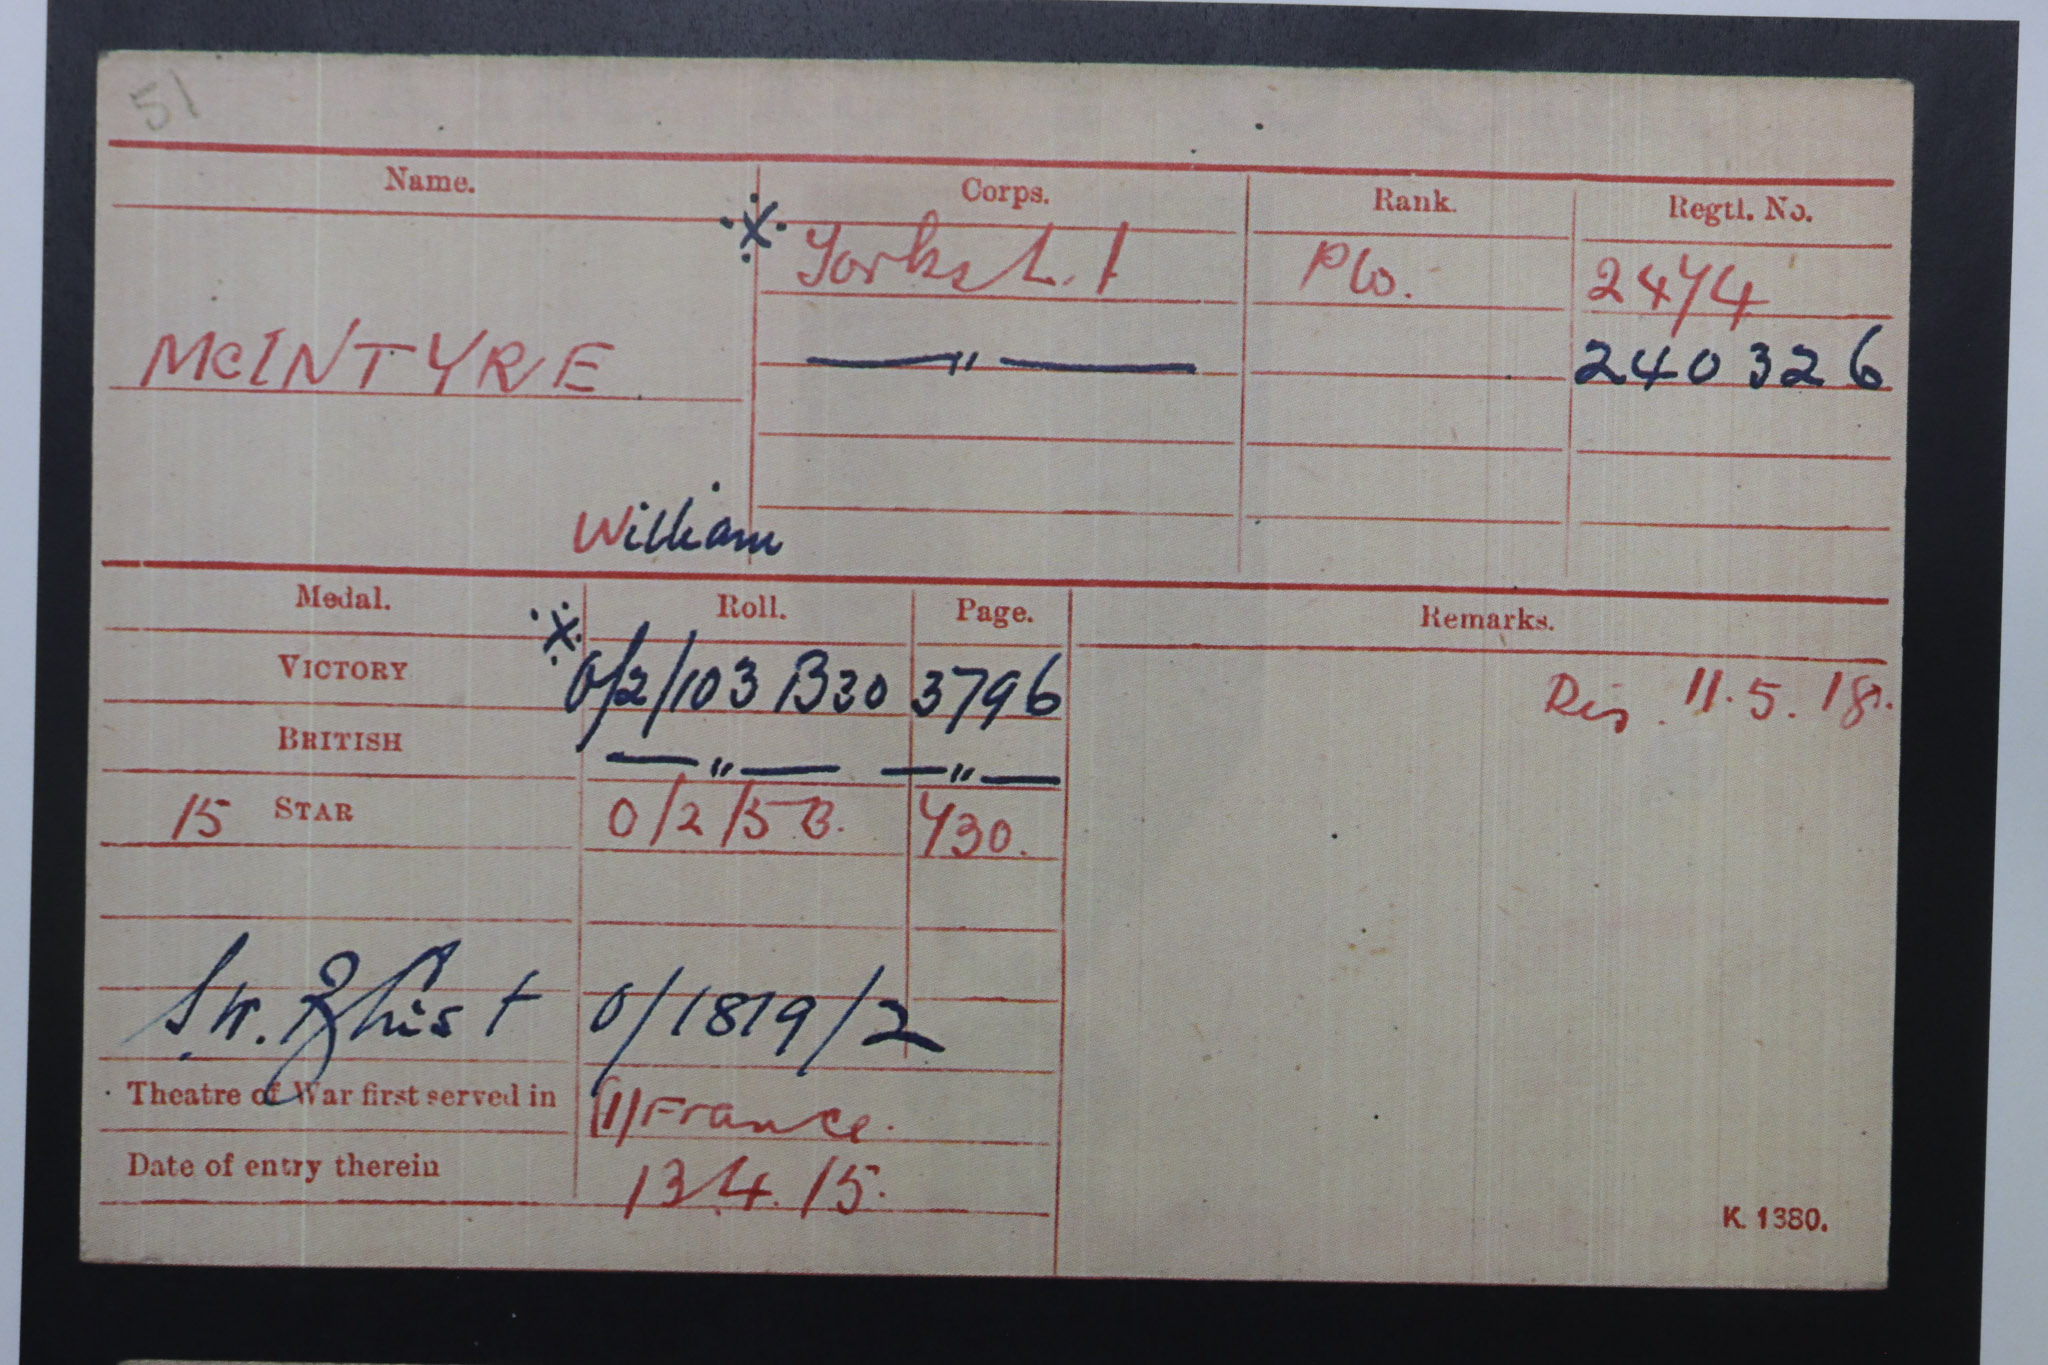 51
Name. Corps. Rank. Regtl. No.
·X· Yorks L. I Pte. 2474
McINTYRE —— " —— 240326
William
Medal. Roll. Page. Remarks.
VICTORY ·X· O/2/103 B30 3796 Dis. 11.5.18.
BRITISH — " — — " —
15 STAR O/2/5 B. 730.
O/1819/2
Theatre of War first served in (1) France.
Date of entry therein 13.4.15.
K. 1380.